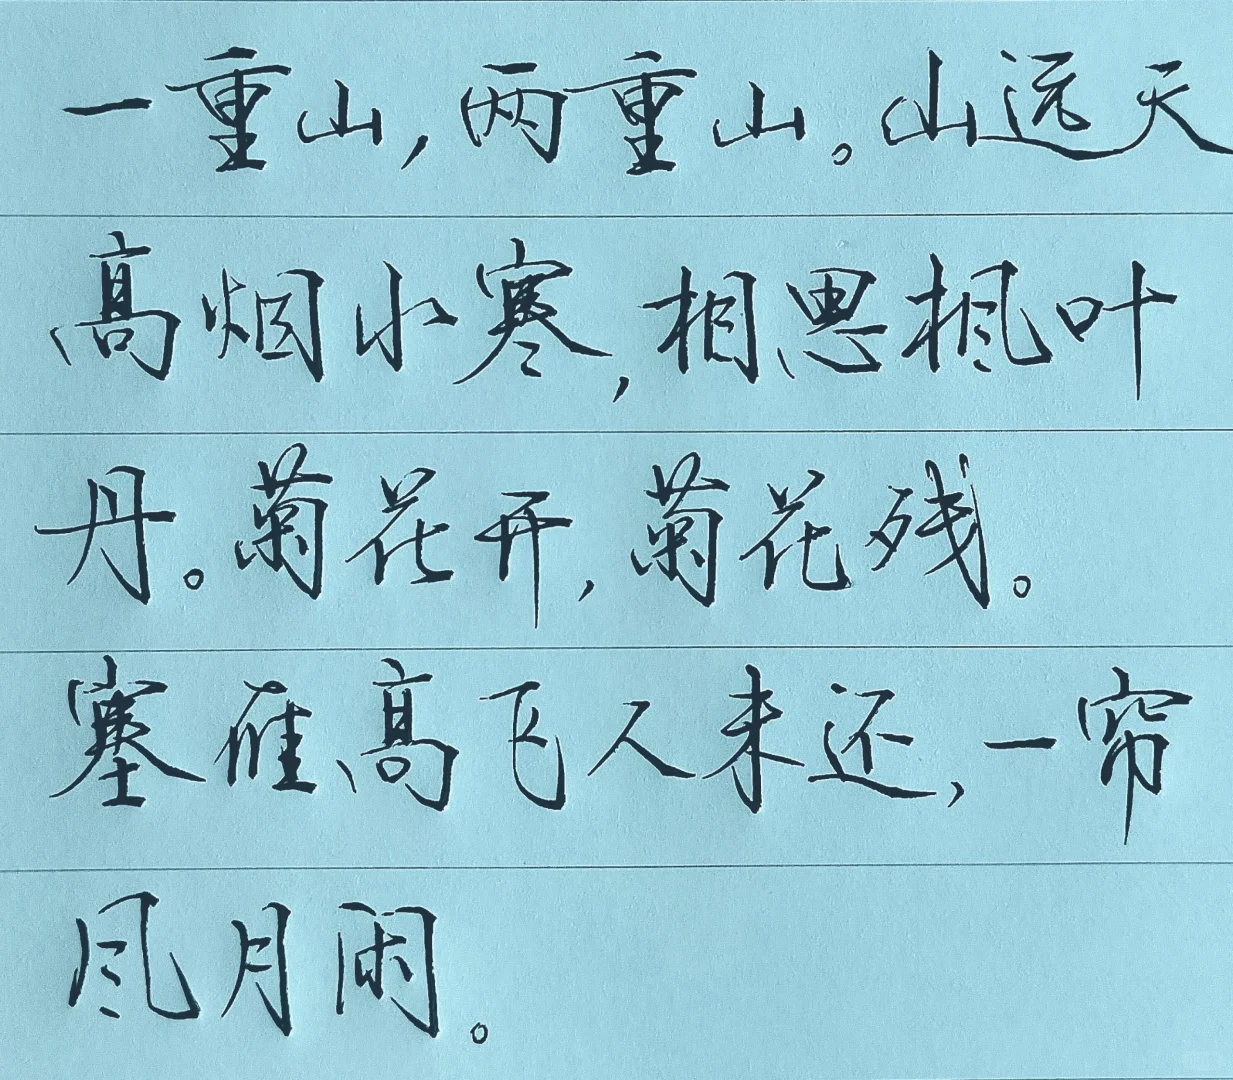 一重山，两重山。山远天
高烟水寒，相思枫叶
丹。菊花开，菊花残。
塞雁高飞人未还，一帘
风月闲。